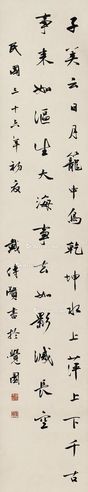 子美云日月籠中鳥乾坤水上萍上下千古
事來如漚生大海事去如影滅長空
民國三十六年初夏 戴傳賢書於覽園